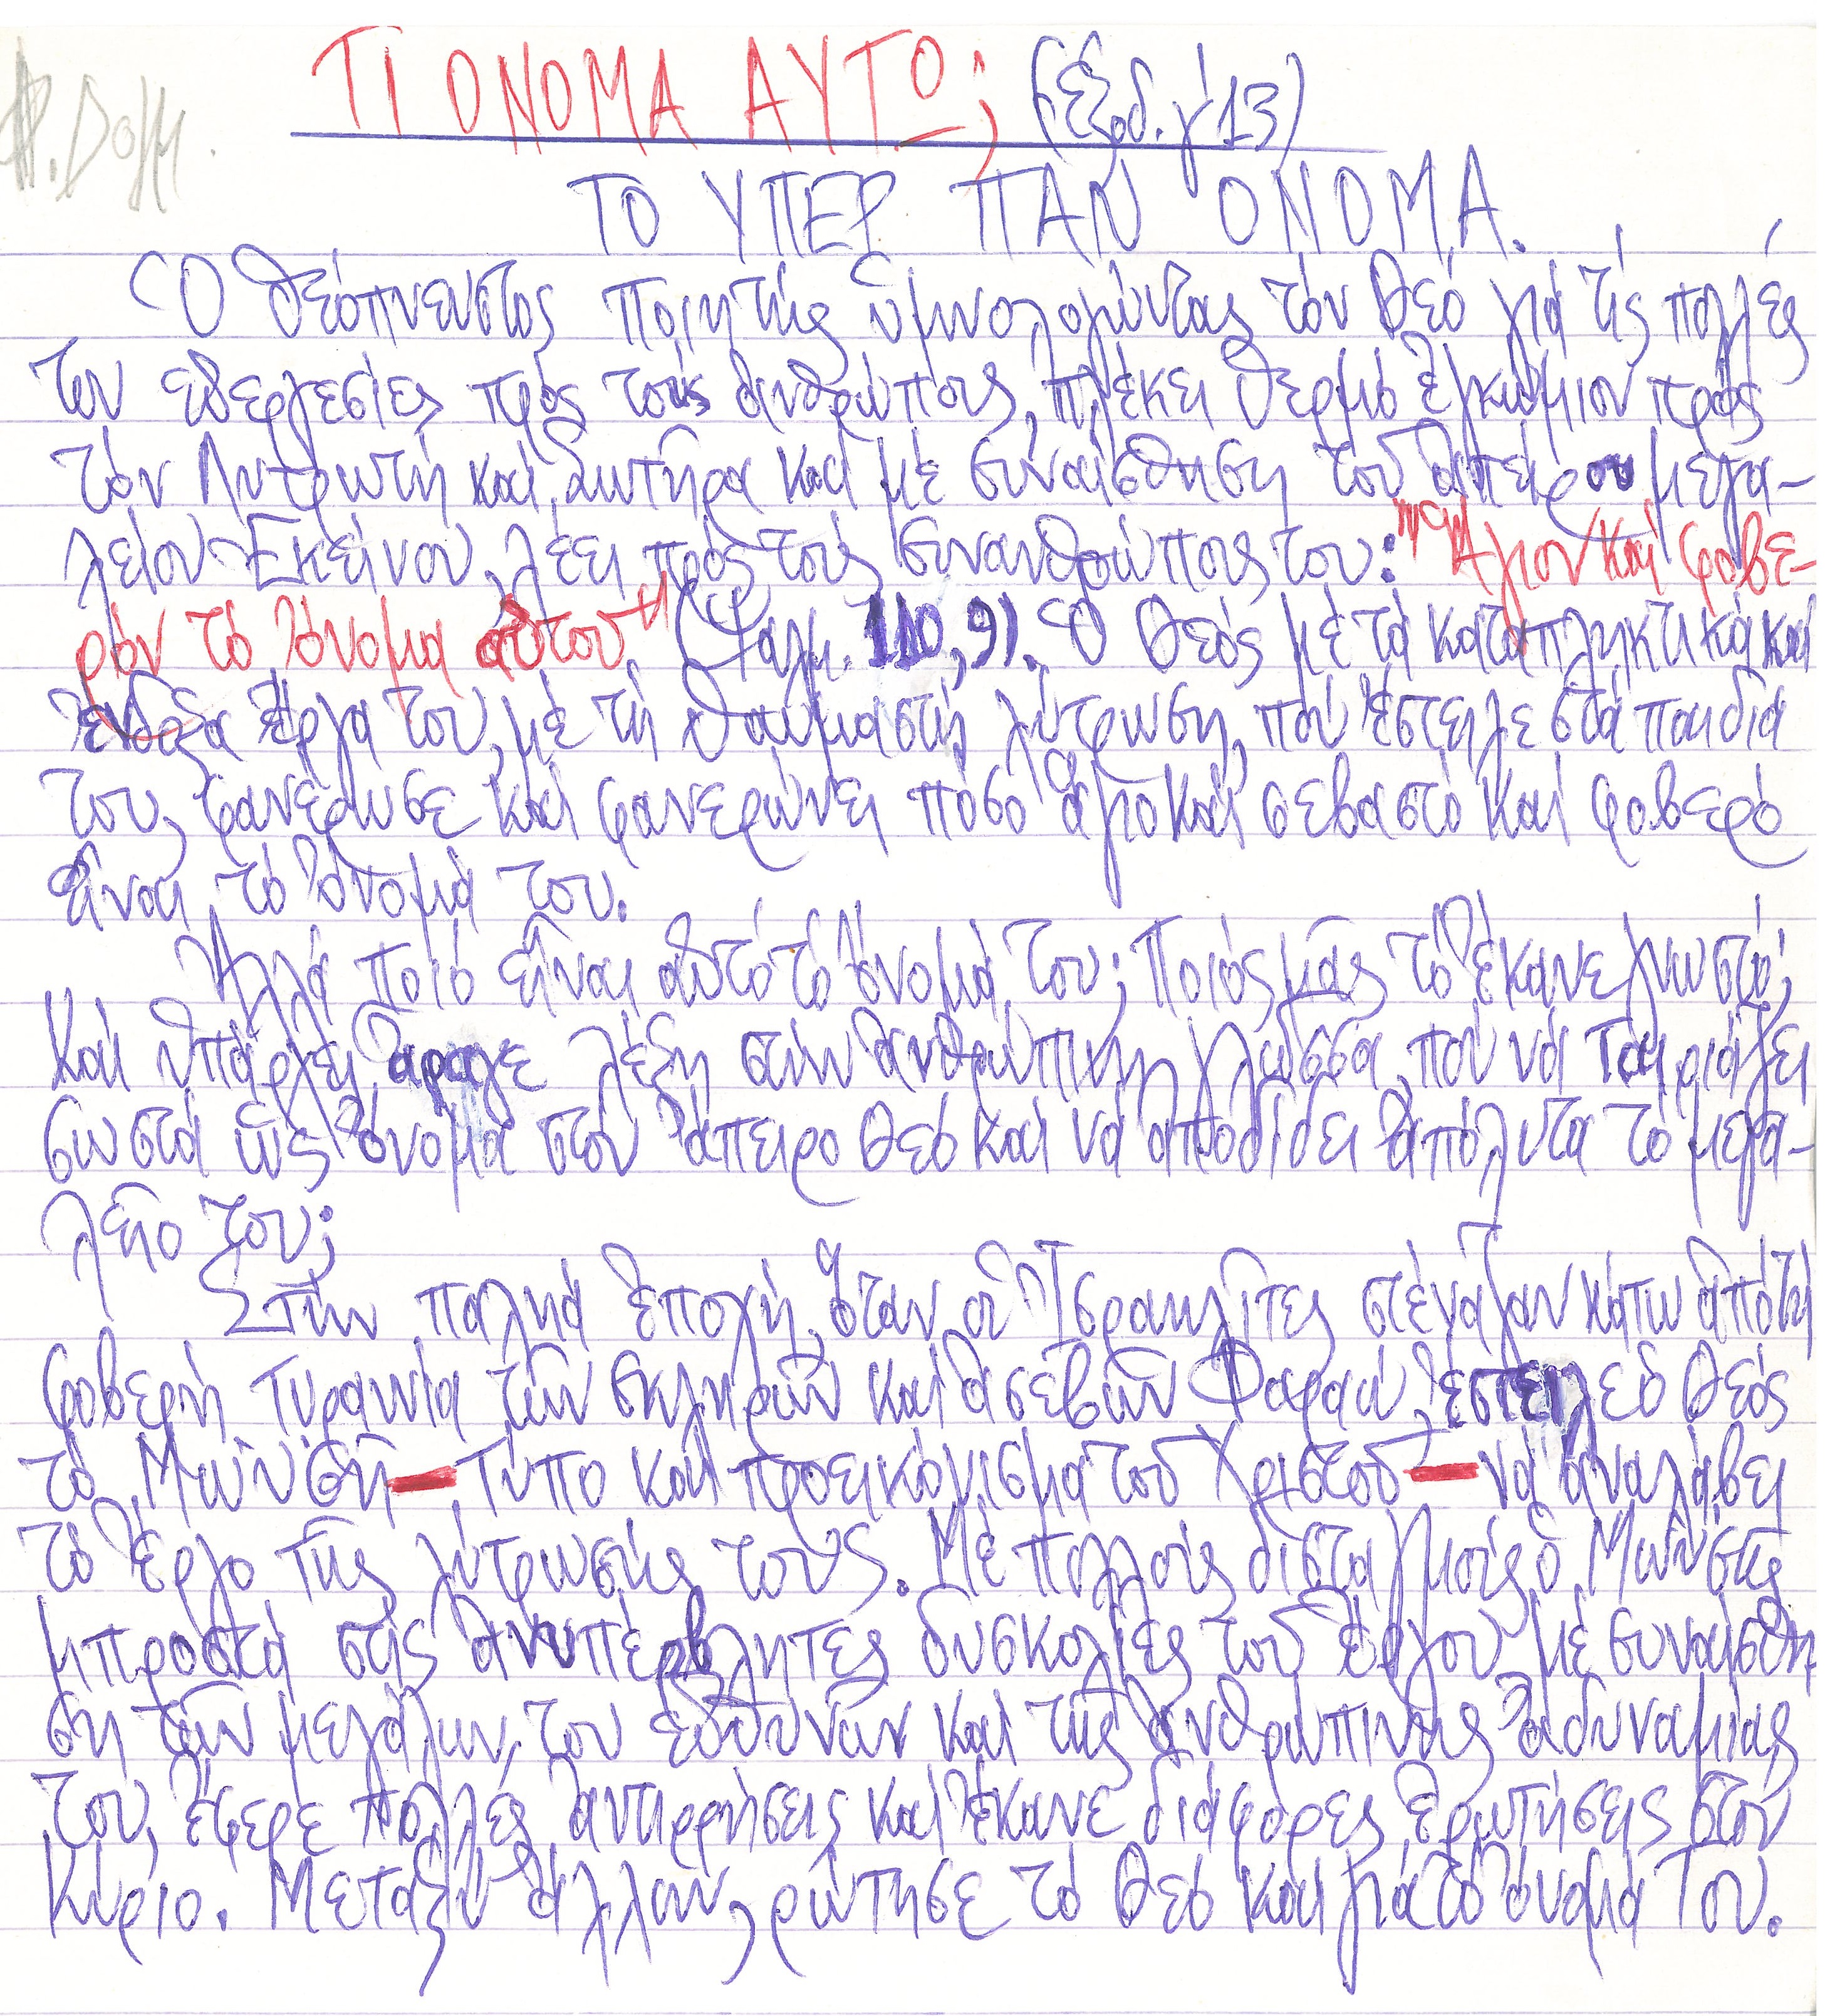 ΤΙ ΟΝΟΜΑ ΑΥΤΩ; (Ἐξόδ. γ' 13)
ΤΟ ΥΠΕΡ ΠΑΝ ΟΝΟΜΑ.
Ὁ θεόπνευστος ποιητής ὑμνολογώντας τόν Θεό γιά τίς πολλές
του εὐεργεσίες πρός τούς ἀνθρώπους, πλέκει θερμό ἐγκώμιον πρός
τόν Λυτρωτή καί Σωτήρα καί μέ συναίσθηση τοῦ ἀπείρου μεγα-
λείου Ἐκείνου, λέει πρός τούς συνανθρώπους του: "Ἅγιον καί φοβε-
ρόν τό ὄνομα αὐτοῦ" (Ψαλμ. 110,9). Ὁ Θεός μέ τά καταπληκτικά καί
ἔνδοξα ἔργα του, μέ τή θαυμαστή λύτρωση, πού ἔστειλε στά παιδιά
του, φανέρωσε καί φανερώνει πόσο ἅγιο καί σεβαστό καί φοβερό
εἶναι τό ὄνομά του.
Ἀλλά ποιό εἶναι αὐτό τό ὄνομά του; Ποιός μᾶς τό ἔκανε γνωστό;
Καί ὑπάρχει ἄραγε λέξη στήν ἀνθρώπινη γλῶσσα, πού νά ταιριάζει
σωστά ὡς ὄνομα στόν ἄπειρο Θεό καί νά ἀποδίδει ἀπόλυτα τό μεγα-
λεῖο του;
Στήν παληά ἐποχή, ὅταν οἱ Ἰσραηλίτες στέναζαν κάτω ἀπό τή
φοβερή τυραννία τῶν σκληρῶν καί ἀσεβῶν Φαραώ, ἔστειλε ὁ Θεός
τό Μωϋσῆ – τύπο καί προεικόνισμα τοῦ Χριστοῦ – νά ἀναλάβει
τό ἔργο τῆς λύτρωσής τους. Μέ πολλούς δισταγμούς ὁ Μωϋσῆς
μπροστά στίς ἀνυπέρβλητες δυσκολίες τοῦ ἔργου, μέ συναίσθη
ση τῶν μεγάλων του εὐθυνῶν καί τῆς ἀνθρώπινης ἀδυναμίας
του, ἔφερε πολλές ἀντιρρήσεις καί ἔκανε διάφορες ἐρωτήσεις στόν
Κύριο. Μεταξύ ἄλλων, ρώτησε τό Θεό καί γιά τό ὄνομά Του.